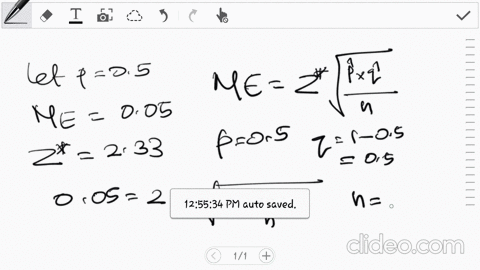 let p = 0.5
ME = 0.05
Z* = 2.33
0.05 = 2
ME = Z* √(p̂ × q̂ / n)
p = 0.5 q = 1 - 0.5
= 0.5
n =
n
12:55:34 PM auto saved.
1/1
clideo.com